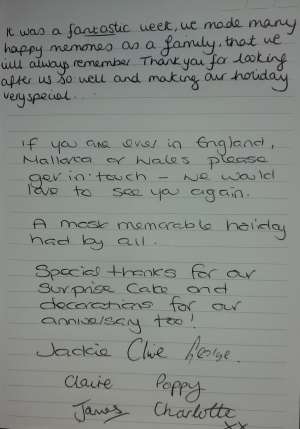 It was a fantastic week, we made many
happy memories as a family, that we
will always remember. Thank you for looking
after us so well and making our holiday
very special...
If you are ever in England,
Mallorca or Wales please
get in touch - we would
love to see you again.
A most memorable holiday
had by all.
Special thanks for our
Surprise Cake and
decorations for our
anniversary too!
Jackie Clive George.
Claire Poppy
James Charlotte
xx